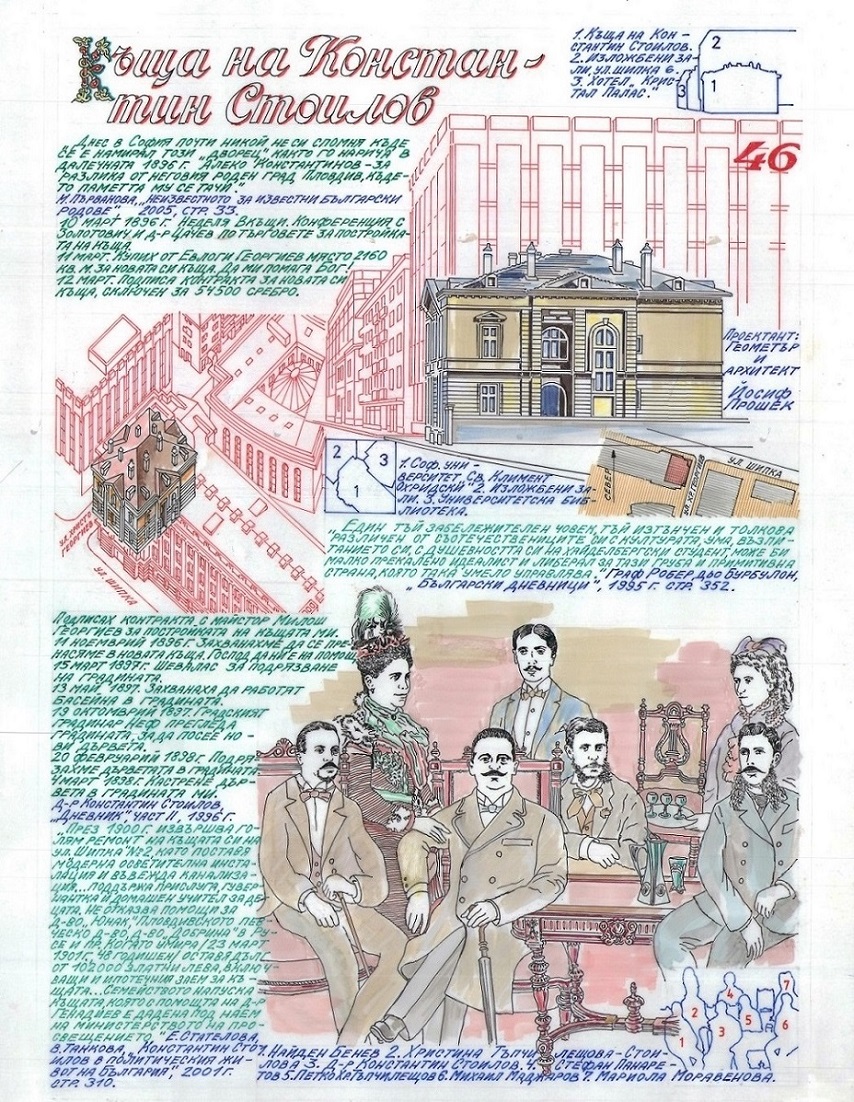 Къща на Констан-
тин Стоилов
1. Къща на Кон-
стантин Стоилов.
2. Изложбени за-
ли, ул. Шипка 6.
3. Хотел „Крис-
тал Палас."
2
1
3
46
Днес в София почти никой не си спомня къде
се е намирал този „дворец", както го нарича в
далечната 1896 г. Алеко Константинов – за
разлика от неговия роден град Пловдив, къде-
то паметта му се тачи."
„Неизвестното за известни български
родове" 2005, стр. 33.
10 март 1896 г. Неделя вкъщи. Конференция с
Золотович и д-р Цачев по търговете за постройка-
та на къща.
11 март. Купих от Евлоги Георгиев място 2160
кв. м. за новата си къща. Да ми помага Бог!
12 март. Подписа контракта за новата си
къща, сключен за 54500 сребро.
Проектант:
Геометър
и
архитект
Йосиф
Прошек
2
3
1
1. Соф. уни-
верситет „Св. Климент
Охридски" 2. Изложбени за-
ли. 3. Университетска биб-
лиотека.
север
ул. Шипка
ул. Шипка
„Един тъй забележителен човек, тъй изтънчен и толкова
различен от съотечествениците си с културата, ума, възпи-
танието си, с душевността си на хайделбергски студент, може би
малко прекалено идеалист и либерал за тази груба и примитивна
страна, която така умело управлява" Граф Робер дьо Бурбулон,
„Български дневници", 1995 г. стр. 352.
Подписах контракта с майстор Милош
Георгиев за постройката на къщата ми.
11 ноемврий 1896 г. Захванахме да се пре-
насяме в новата къща. Господ да ни е на помощ
15 март 1897 г. Шевалас за подрязване
на градината.
13 май 1897. Захванаха да работят
басейна в градината.
19 октомврий 1897. Градският
градинар Неф прегледа
градината, за да посее но-
ви дървета.
20 февруарий 1898 г. Подря-
захме дърветата в градината
1 март 1898 г. Кастрене дър-
вета в градината ми.
Д-р Константин Стоилов,
„Дневник", част II, 1996 г.
„През 1900 г. извършва го-
лям ремонт на къщата си на
ул. Шипка №2, като поставя
модерна осветителна инста-
лация и въвежда канализа-
ция... поддържа прислуга, гувер-
нантка и домашен учител за де-
цата, не отказва помощи за
д-во „Юнак", Пловдивското пев-
ческо д-во, д-во „Добрина" в Ру-
се и пр. Когато умира /23 март
1901 г. 48 годишен/ оставя дълг
от 102000 златни лева, включ-
ващи и ипотечния заем за къ-
щата... Семейството напуска
къщата, която с помощта на д-р
Генадиев е дадена под наем
на Министерството на про-
свещението" Е. Стателова,
В. Танкова, „Константин Сто-
илов в политическия жи-
вот на България", 2001 г.
стр. 310.
1
2
3
4
5
6
7
1. Найден Бенев 2. Христина Тъпчилещова-Стои-
лова 3. Д-р Константин Стоилов. 4. Стефан Панаре-
тов 5. Петко х. Тъпчилещов 6. Михаил Маджаров 7. Мариола Моравенова.